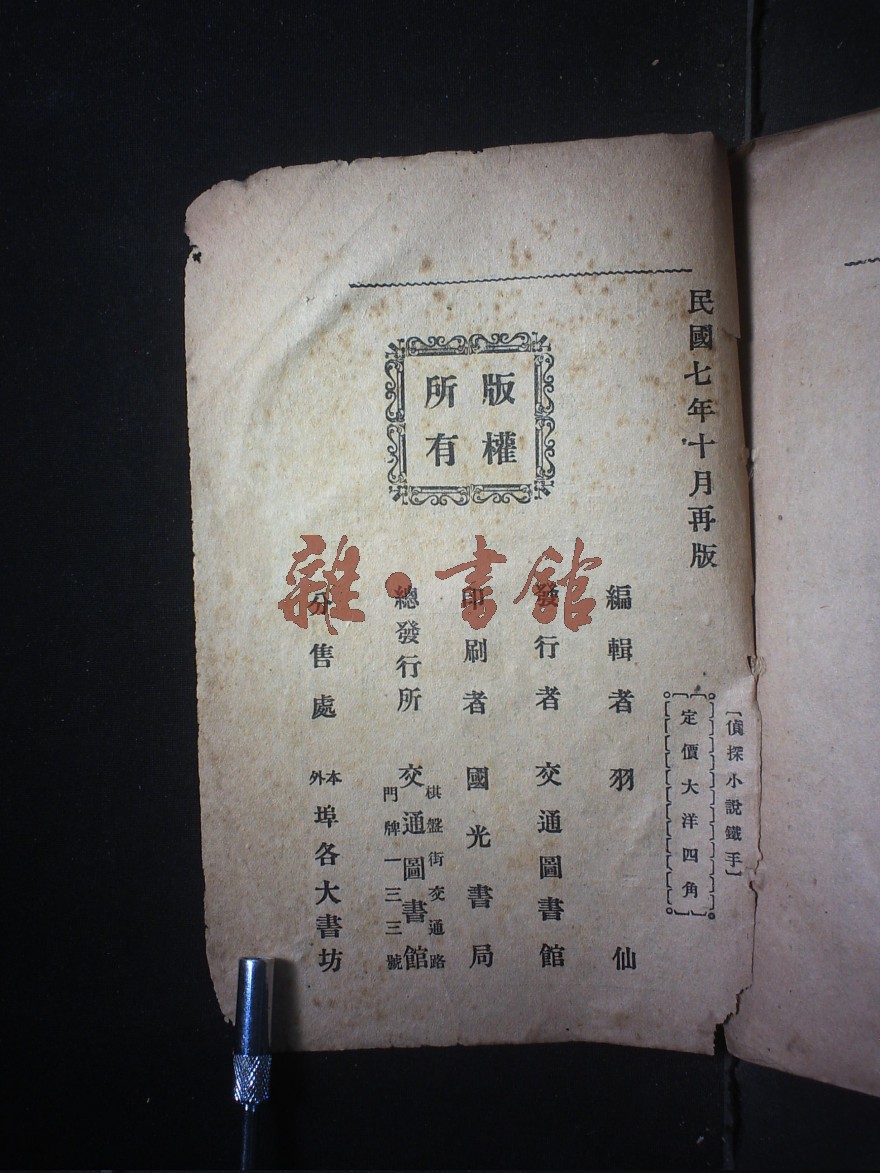 民國七年十月再版
版權
所有
〔偵探小說鐵手〕
定價大洋四角
編輯者 羽仙
發行者 交通圖書館
印刷者 國光書局
總發行所 交通圖書館
棋盤街交通路
門牌一三三號
分售處 本外埠各大書坊
雜·書館